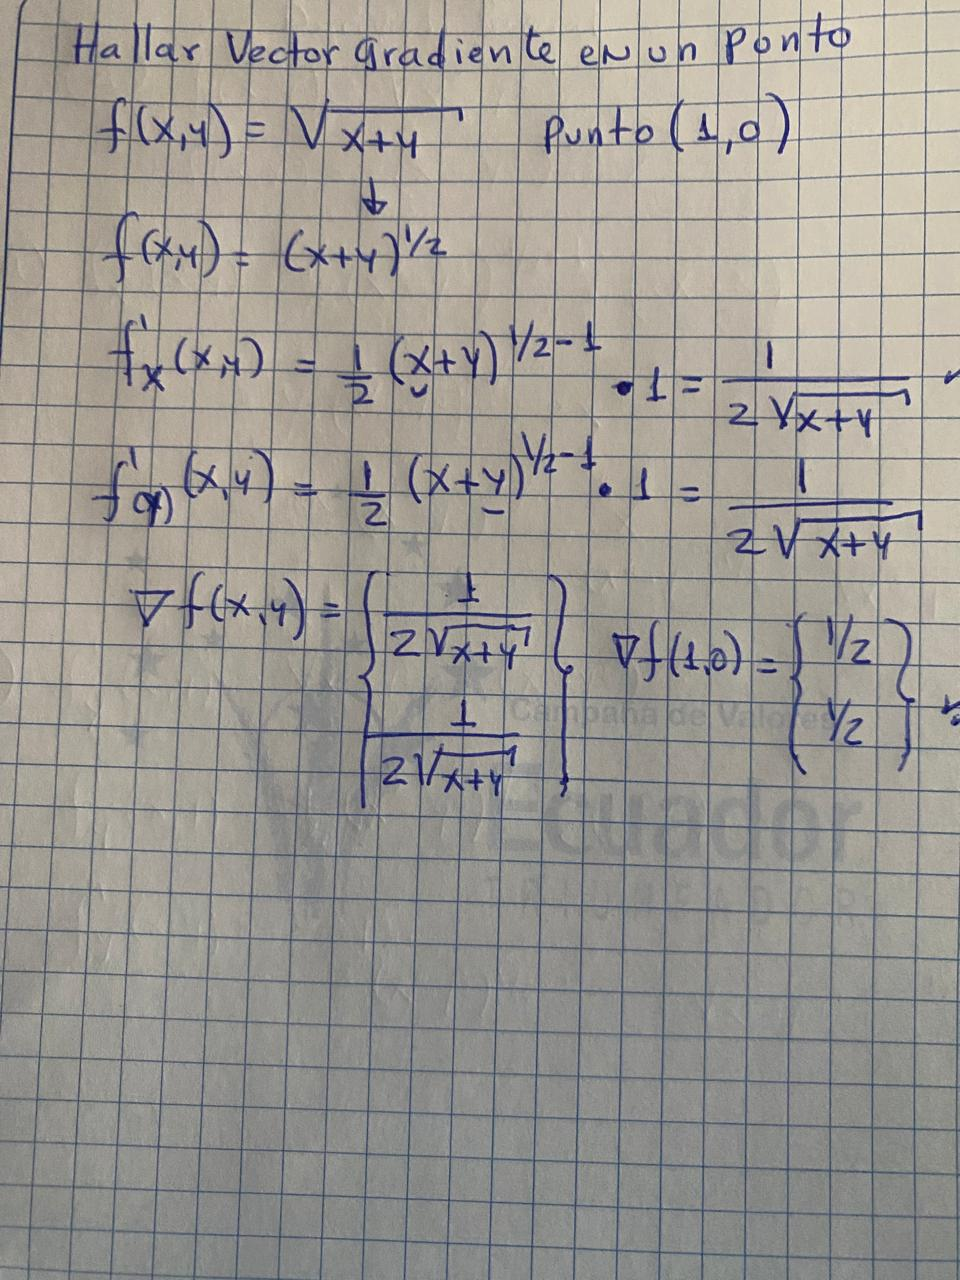 Hallar Vector gradiente en un Ponto
f(x,y) = √x+y   Punto (1,0)
↓
f(x,y) = (x+y)^1/2
f'x (x,y) = 1/2 (x+y)^1/2-1 • 1 = 1/2√x+y
f'(x) (x,y) = 1/2 (x+y)^1/2-1 • 1 = 1/2√x+y
∇f(x,y) = { 1/2√x+y   1/2√x+y }   ∇f(1,0) = { 1/2   1/2 }
Campaña de Valores
Ecuador